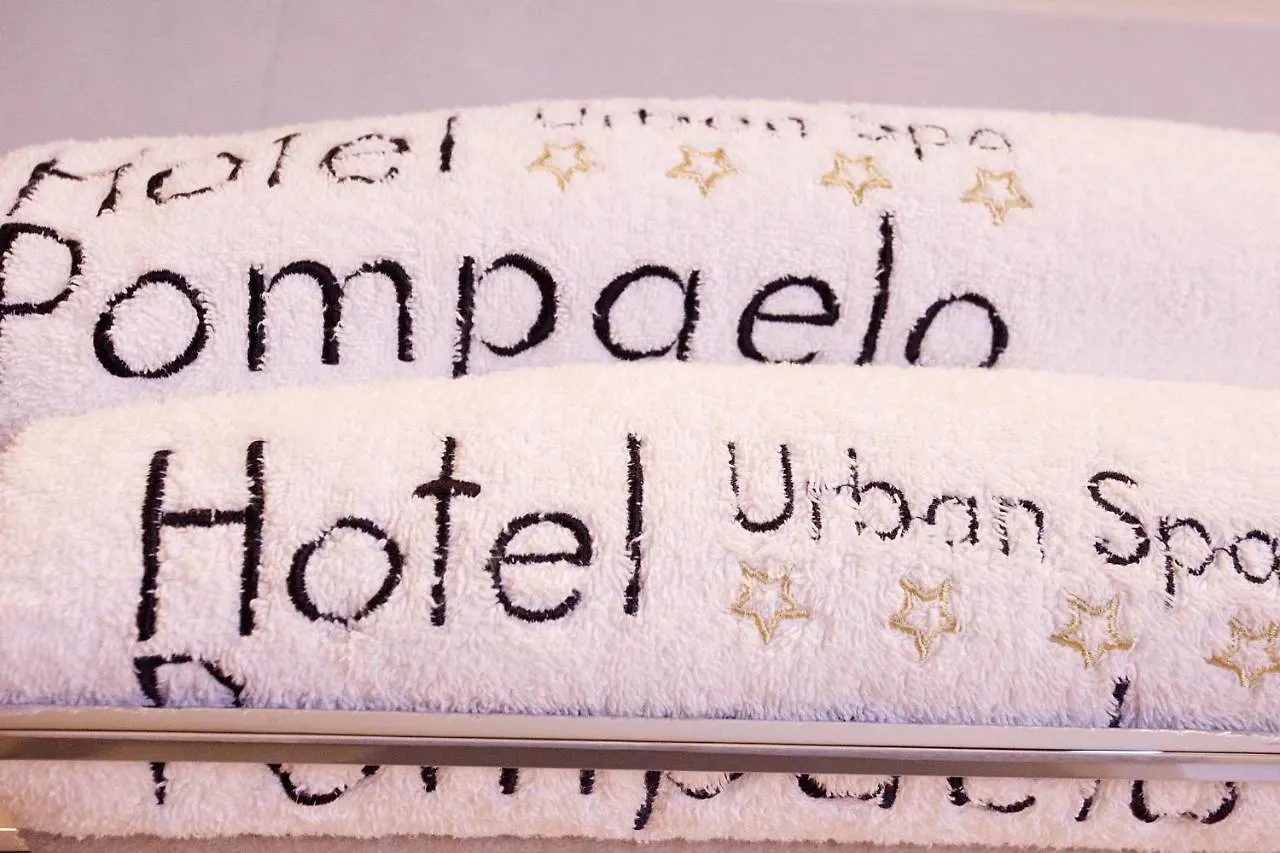 Hotel Urban Spa
Pompaelo
Hotel Urban Spa
Pompaelo